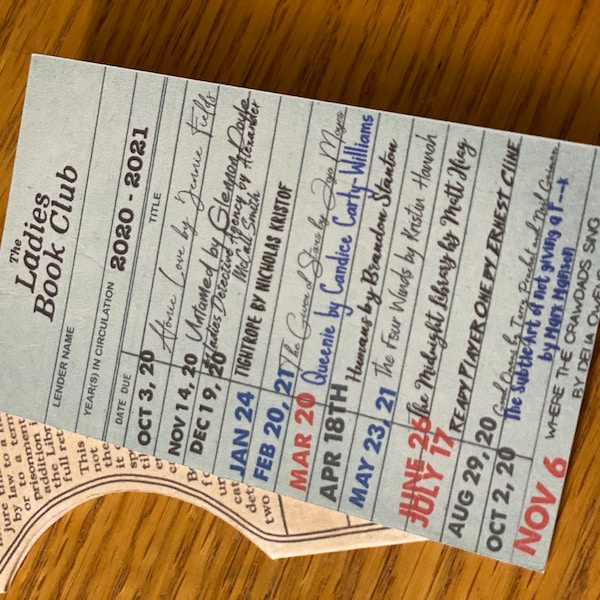 The
Ladies
Book Club
LENDER NAME
YEAR(S) IN CIRCULATION 2020 - 2021
DATE DUE TITLE
OCT 3, 20 Atomic Love by Jennie Fields
NOV 14, 20 Untamed by Glennon Doyle
DEC 19, 20 Ladies Detective Agency by Alexander
McCall Smith
JAN 24 TIGHTROPE BY NICHOLAS KRISTOF
FEB 20, 21 The Giver of Stars by Jojo Moyes
MAR 20 Queenie by Candice Carty-Williams
APR 18TH Humans by Brandon Stanton
MAY 23, 21 The Four Winds by Kristin Hannah
JUNE 26
JULY 17 The Midnight Library by Matt Haig
AUG 29, 20 READY PLAYER ONE BY ERNEST CLINE
OCT 2, 20 Good Omens by Terry Prachet and Neil Gaiman
NOV 6 The Subtle Art of not giving a F--k
by Mark Manson
WHERE THE CRAWDADS SING
BY DELIA OWENS